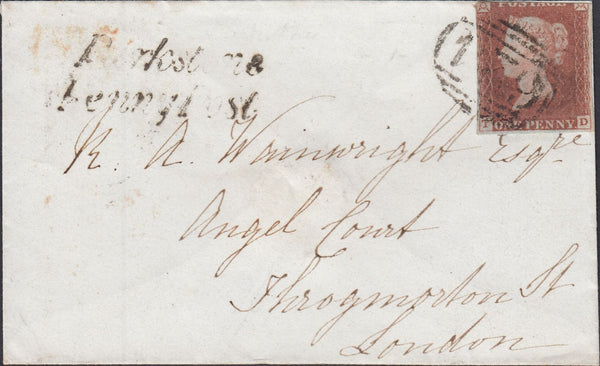 Parkstone
PennyPost
POSTAGE
ONE PENNY
D
R. A. Wainwright Esqre
Angel Court
Throgmorton St
London